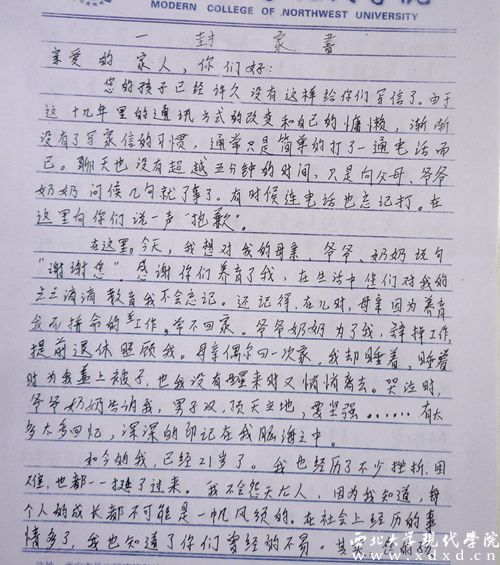 MODERN COLLEGE OF NORTHWEST UNIVERSITY
一封家书
亲爱的家人，你们好：
您的孩子已经许久没有这样给你们写信了。由于
这十九年里的通讯方式的改变和自己的慵懒，渐渐
没有了写家信的习惯，通常只是简单的打了一通电话而
已。聊天也没有超越五分钟的时间，只是向父母、爷爷
奶奶问候几句就了事了。有时候连电话也忘记打。在
这里向你们说一声“抱歉”。
在这里。今天，我想对我的母亲、爷爷、奶奶说句
“谢谢您”感谢你们养育了我，在生活中你们对我的
点点滴滴教育我不会忘记。还记得，在儿时，母亲因为养育
我而拼命的工作。常不回家。爷爷奶奶为了我，辞掉工作，
提前退休照顾我。母亲偶尔回一次家，我却睡着，睡着
时为我盖上被子，也我没有醒来时又悄悄离去。哭泣时，
爷爷奶奶告诉我，男子汉，顶天立地，要坚强……有太
多太多回忆，深深的印记在我脑海之中。
如今的我，已经21岁了。我也经历了不少挫折、困
难，也都一一挺了过来。我不会怨天尤人，因为我知道，每
个人的成长都不可能是一帆风顺的。在社会上经历的事
情多了，我也知道了你们曾经的不易。其实，你
西北大学现代学院
xdxd.cn